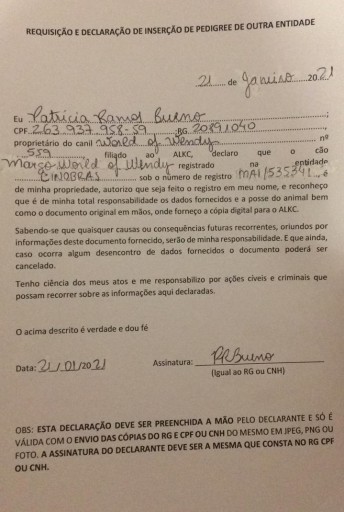 REQUISIÇÃO E DECLARAÇÃO DE INSERÇÃO DE PEDIGREE DE OUTRA ENTIDADE
21 de Janeiro 2021
Eu Patricia Ramos Bueno ;
CPF 263 937 958-59 ;RG 20891040
proprietário do canil World of Wendy nº
559 filiado ao ALKC, declaro que o cão
Março World of Wendy registrado na entidade
CINOBRAS sob o número de registro MAI/535341 é
de minha propriedade, autorizo que seja feito o registro em meu nome, e reconheço
que é de minha total responsabilidade os dados fornecidos e a posse do animal bem
como o documento original em mãos, onde forneço a cópia digital para o ALKC.
Sabendo-se que quaisquer causas ou consequências futuras recorrentes, oriundos por
informações deste documento fornecido, serão de minha responsabilidade. E que ainda,
caso ocorra algum desencontro de dados fornecidos o documento poderá ser
cancelado.
Tenho ciência dos meus atos e me responsabilizo por ações cíveis e criminais que
possam recorrer sobre as informações aqui declaradas.
O acima descrito é verdade e dou fé
Data: 21/01/2021 Assinatura: PRBueno
(Igual ao RG ou CNH)
OBS: ESTA DECLARAÇÃO DEVE SER PREENCHIDA A MÃO PELO DECLARANTE E SÓ É
VÁLIDA COM O ENVIO DAS CÓPIAS DO RG E CPF OU CNH DO MESMO EM JPEG, PNG OU
FOTO. A ASSINATURA DO DECLARANTE DEVE SER A MESMA QUE CONSTA NO RG CPF
OU CNH.